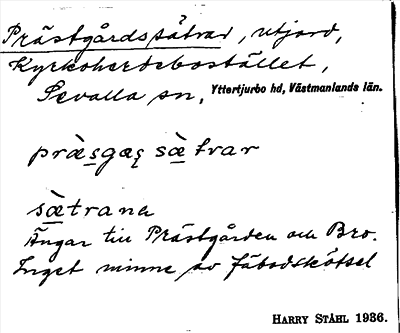 Prästgårdssätrar, utjord,
Kyrkoherdebostället,
Sevalla sn, Yttertjurbo hd, Västmanlands län.
præ̀sgaș sæ̀trar
sæ̀trana
Ängar till Prästgården och Bro.
Inget minne av fäbodskötsel
HARRY STÅHL 1936.